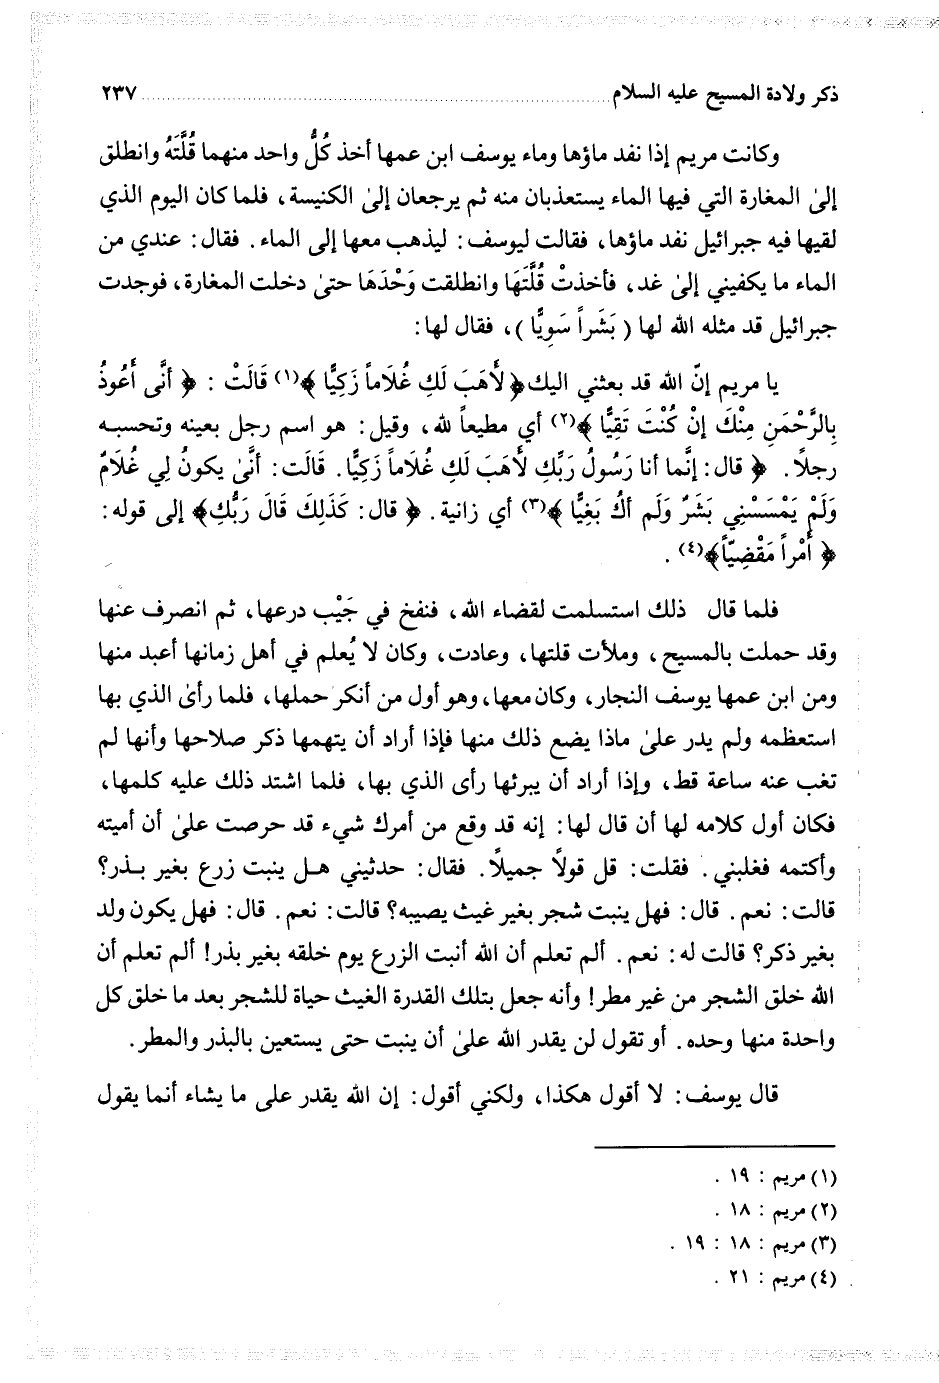 ذكر ولادة المسيح عليه السلام ........................................ ٢٣٧
وكانت مريم إذا نفد ماؤها وماء يوسف ابن عمها أخذ كُلُّ واحد منهما قُلَّتَهُ وانطلق
إلىٰ المغارة التي فيها الماء يستعذبان منه ثم يرجعان إلىٰ الكنيسة، فلما كان اليوم الذي
لقيها فيه جبرائيل نفد ماؤها، فقالت ليوسف: ليذهب معها إلى الماء. فقال: عندي من
الماء ما يكفيني إلىٰ غد، فأخذتْ قُلَّتَهَا وانطلقت وَحْدَهَا حتىٰ دخلت المغارة، فوجدت
جبرائيل قد مثله الله لها ( بَشَراً سَوِيًّا )، فقال لها:
يا مريم إنّ الله قد بعثني اليك﴿ لأَهَبَ لَكِ غُلَاماً زَكِيًّا ﴾(١) قَالَتْ : ﴿ أَنَّى أَعُوذُ
بِالرَّحْمَنِ مِنْكَ إنْ كُنْتَ تَقِيًّا ﴾(٢) أي مطيعاً لله، وقيل: هو اسم رجل بعينه وتحسبه
رجلاً. ﴿ قال: إنَّما أنا رَسُولُ رَبِّكِ لأهَبَ لَكِ غُلاماً زَكِيًّا. قَالَت: أنَّىٰ يكونُ لِي غُلَامٌ
وَلَمْ يَمْسَسْنِي بَشَرٌ وَلَم أكُ بَغِيًّا ﴾(٣) أي زانية. ﴿ قال: كَذَلِكَ قَالَ رَبُّكِ﴾ إلى قوله:
﴿ أَمْراً مَقْضِيّاً﴾(٤) .
فلما قال ذلك استسلمت لقضاء الله، فنفخ في جَيْب درعها، ثم انصرف عنها
وقد حملت بالمسيح، وملأت قلتها، وعادت، وكان لا يُعلم في أهل زمانها أعبد منها
ومن ابن عمها يوسف النجار، وكان معها، وهو أول من أنكر حملها، فلما رأىٰ الذي بها
استعظمه ولم يدر علىٰ ماذا يضع ذلك منها فإذا أراد أن يتهمها ذكر صلاحها وأنها لم
تغب عنه ساعة قط، وإذا أراد أن يبرئها رأى الذي بها، فلما اشتد ذلك عليه كلمها،
فكان أول كلامه لها أن قال لها: إنه قد وقع من أمرك شيء قد حرصت علىٰ أن أميته
وأكتمه فغلبني. فقلت: قل قولاً جميلاً. فقال: حدثيني هل ينبت زرع بغير بذر؟
قالت: نعم. قال: فهل ينبت شجر بغير غيث يصيبه؟ قالت: نعم. قال: فهل يكون ولد
بغير ذكر؟ قالت له: نعم. ألم تعلم أن الله أنبت الزرع يوم خلقه بغير بذر! ألم تعلم أن
الله خلق الشجر من غير مطر! وأنه جعل بتلك القدرة الغيث حياة للشجر بعد ما خلق كل
واحدة منها وحده. أو تقول لن يقدر الله علىٰ أن ينبت حتى يستعين بالبذر والمطر.
قال يوسف: لا أقول هكذا، ولكني أقول: إن الله يقدر على ما يشاء أنما يقول
(١) مريم : ١٩ .
(٢) مريم : ١٨ .
(٣) مريم : ١٨ : ١٩ .
(٤) مريم : ٢١ .